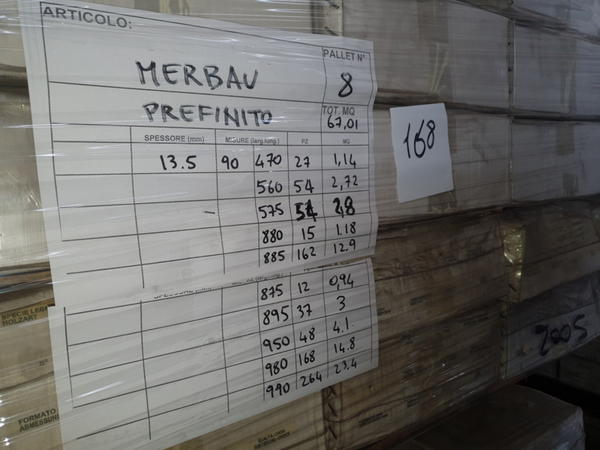 ARTICOLO:
MERBAU
PREFINITO
PALLET N°
8
TOT. MQ
67,01
SPESSORE (mm) MISURE (larg.lung.) PZ MQ
13.5 90 470 27 1,14
560 54 2,72
575 54 2,8
880 15 1.18
885 162 12.9
875 12 0,94
895 37 3
950 48 4.1
980 168 14.8
990 264 23.4
168
2005
HOLZART
FORMATO